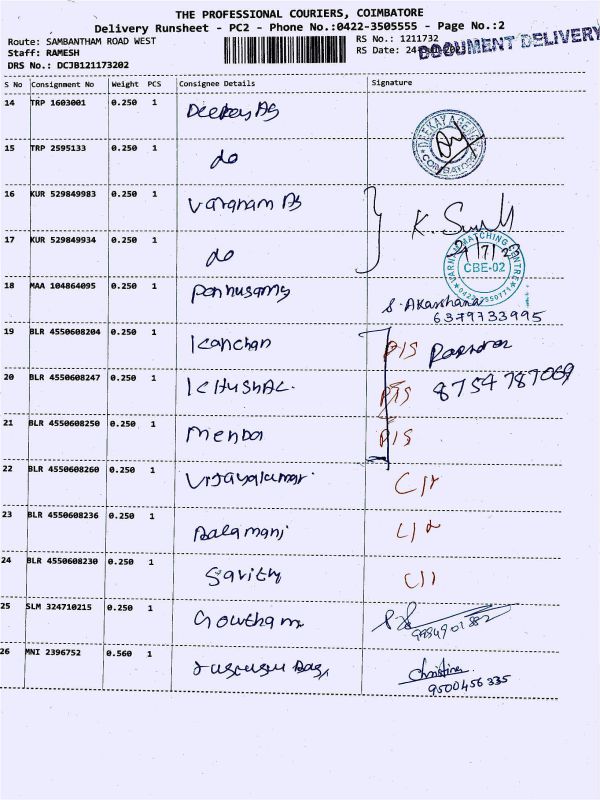 THE PROFESSIONAL COURIERS, COIMBATORE
Delivery Runsheet - PC2 - Phone No.:0422-3505555 - Page No.:2
Route: SAMBANTHAM ROAD WEST
Staff: RAMESH
DRS No.: DCJB121173202
RS No.: 1211732
RS Date: 24
DOCUMENT DELIVERY
S No Consignment No Weight PCS Consignee Details Signature
14 TRP 1603001 0.250 1 Deekay AG
DEEKAY AGEN COIMBATORE
15 TRP 2595133 0.250 1 do
16 KUR 529849983 0.250 1 Varanam AG K.
17 KUR 529849934 0.250 1 do
VARNAM MATCHING CENTRE CBE-02
18 MAA 104864095 0.250 1 Ponnusamy S. Akarshana
6379733995
19 BLR 4550608204 0.250 1 Kanchan P/S
20 BLR 4550608247 0.250 1 KHUSHAL. P/S 8754787069
21 BLR 4550608250 0.250 1 P/S
22 BLR 4550608260 0.250 1 Vijayakumar
23 BLR 4550608236 0.250 1 Balamani
24 BLR 4550608230 0.250 1 Savithy
25 SLM 324710215 0.250 1 Gowtham
26 MNI 2396752 0.560 1 Christina
9500456335